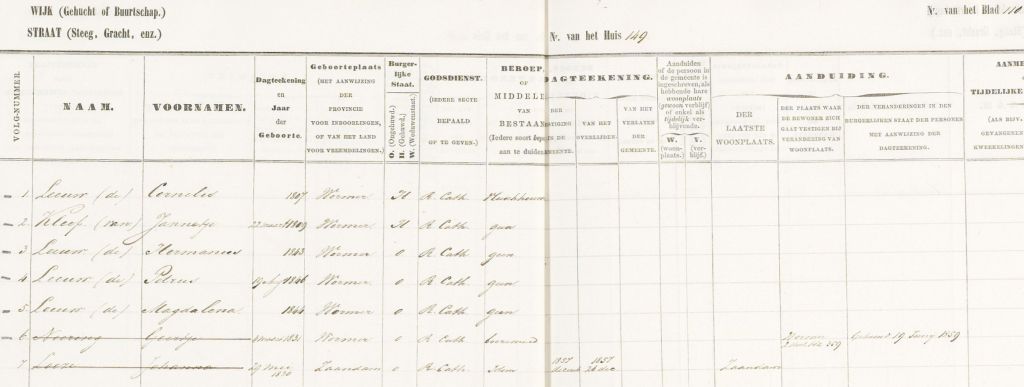 WIJK (Gehucht of Buurtschap.)
Nr. van het Blad 110
STRAAT (Steeg, Gracht, enz.)
Nr. van het Huis 149
VOLG-NUMMER.
NAAM.
VOORNAMEN.
Dagteekening
en
Jaar
der
Geboorte.
Geboorteplaats
(MET AANWIJZING
DER
PROVINCIE
VOOR INBOORLINGEN,
OF VAN HET LAND
VOOR VREEMDELINGEN.)
Burger-
lijke
Staat.
O. (Ongehuwd.)
H. (Gehuwd.)
W. (Weduwenstaat.)
GODSDIENST.
(IEDERE SECTE
BEPAALD
OP TE GEVEN.)
BEROEP
OF
MIDDELE
VAN
BESTAAN
(Iedere soort bep
aan te duide
DAGTEEKENING.
DER
VESTIGING
IN DE
GEMEENTE.
VAN HET
OVERLIJDEN.
VAN HET
VERLATEN
DER
GEMEENTE.
Aanduiden
of de persoon in
de gemeente is
ingeschreven, als
hebbende hare
woonplaats
(gewoon verblijf)
of enkel als
tijdelijk ver-
blijvende.
W.
(woon-
plaats.)
V.
(ver-
blijf.)
AANDUIDING.
DER
LAATSTE
WOONPLAATS.
DER PLAATS WAAR
DE BEWONER ZICH
GAAT VESTIGEN BIJ
VERANDERING VAN
WOONPLAATS.
DER VERANDERINGEN IN DEN
BURGERLIJKEN STAAT DER PERSONEN
MET AANWIJZING DER
DAGTEEKENING.
AANME
TIJDELIJKE
(ALS BIJV.
GEVANGENE
KWEEKELINGEN
1 Leeuw (de) Cornelis 1807 Wormer H R. Cath.
2 Kleef (van) Jannetje 1809 Wormer H R. Cath. geen
3 Leeuw (de) Hermanus 1843 Wormer o R. Cath geen
4 Leeuw (de) Petrus 1846 Wormer o R. Cath. geen
5 Leeuw (de) Magdalena 1844 Wormer o R. Cath. geen
6 Geertje 1831 Wormer o R. Cath Gehuwd 19 Juny 1859
7 Johanna 29 1830 Zaandam o R. Cath. Idem 1857 1857 26 dec Zaandam